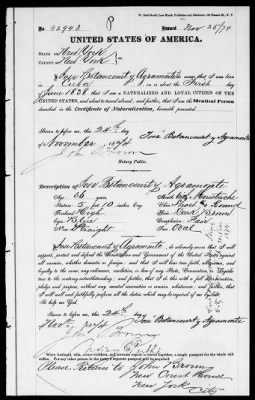 No. 42943 8 Issued Nov 25/74
UNITED STATES OF AMERICA.
STATE OF New York
COUNTY OF New York
I, Jose Betancourt y Agramonte do swear that I was born
in Cuba on the First day
of June 1838 that I am a NATURALIZED AND LOYAL CITIZEN OF THE
UNITED STATES, and about to travel abroad; and further, that I am the Identical Person
described in the Certificate of Naturalization, herewith presented.
Sworn to before me this 24th day
of November 1874
Jose Betancourt y Agramonte
Notary Public.
Description of Jose Betancourt y Agramonte
Age 36 years
Mouth Moustache
Stature 5 feet inches Eng.
Chin Round
Forehead High
Hair Dark Brown
Eyes Blue
Complexion Fair
Nose Straight
Face Oval
I, Jose Betancourt y Agramonte, do solemnly swear that I will
support, protect and defend the Constitution and Government of the United States against
all enemies, whether domestic or foreign; and that I will bear true faith, allegiance, and
loyalty to the same, any ordinance, resolution, or law of any State, Convention, or Legislature
to the contrary notwithstanding; and further, that I do this with a full determination,
pledge and purpose, without any mental reservation or evasion whatsoever; and further, that
I will well and faithfully perform all the duties which may be required of me by law.
So help me God.
Sworn to before me, this 24th day
of Nov 1874
Jose Betancourt y Agramonte
Please Return to John Brown
New Court House
New York
City